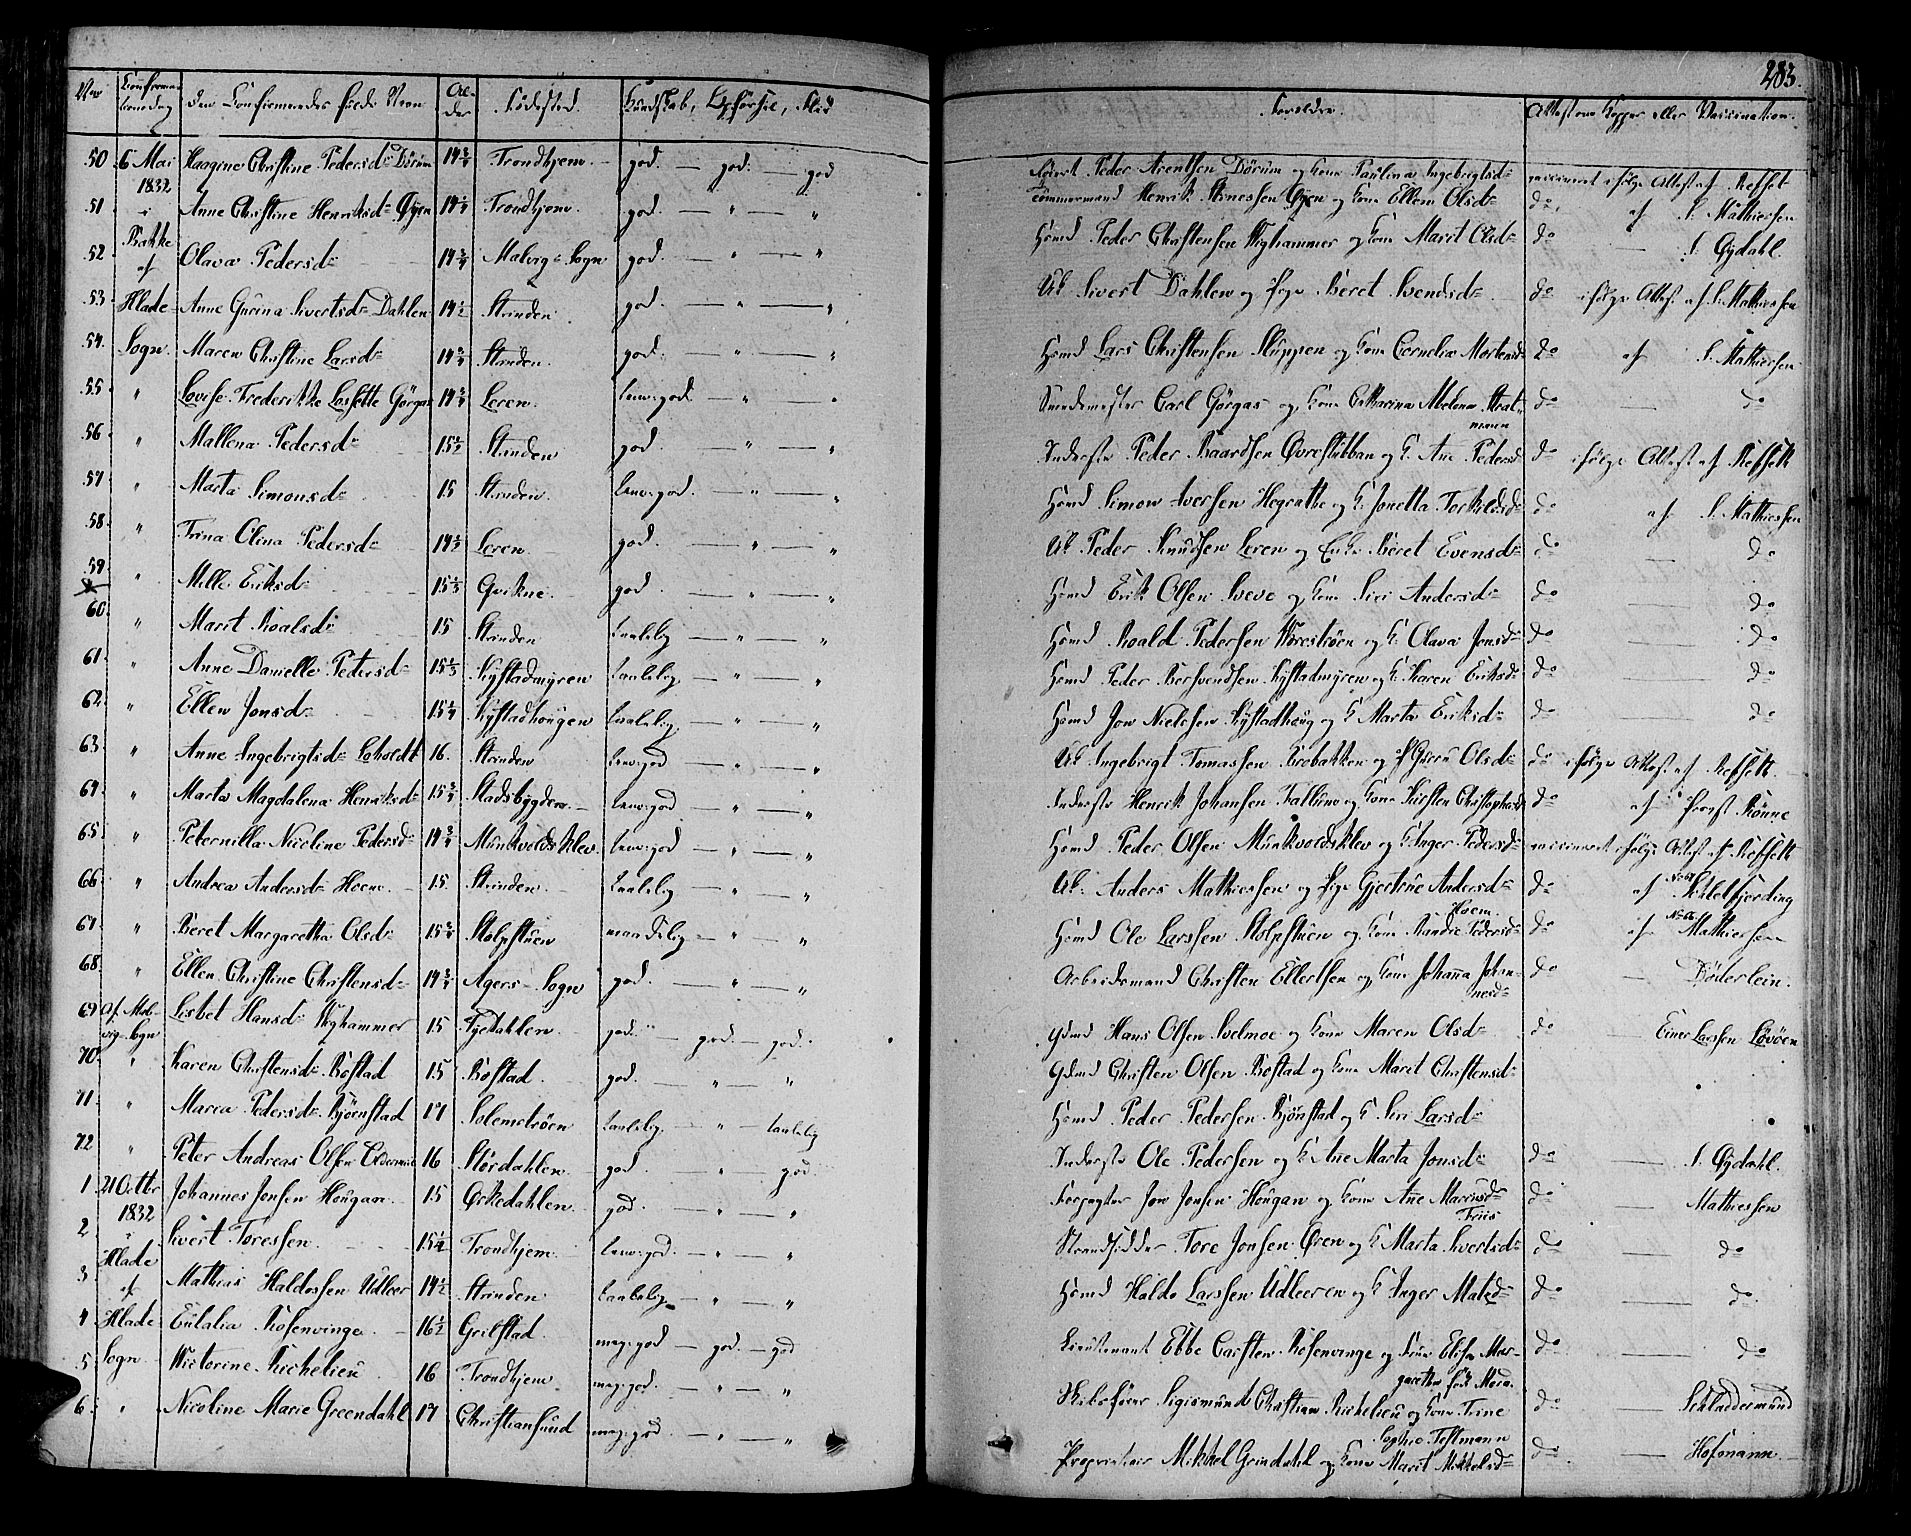 283.
No Confirmationsdag den Confirmeredes fulde Navn Alder Födested Kundskab, Opförsel, Flid
Forældre. Attest om Kopper eller Vaccination.
50 6 Mai 1832 Christine Pedersd. 14 3/4 Trondhjem god. — god. — god Peder Arentsen Dörum og Kone Paulina Ingebrigtsd. vaccineret ifølge Attest af
51 i Anne Christine Henriksd. Öyen 14 3/4 Trondhjem. god. — " — " Tömmermand Henrik Öyen og Kone Ellen Olsd. do. af S. Mathiesen
52 Bakke af Olava Pedersd. 14 3/4 Malvig Sogn god. — " — " Hsmd Peder Christensen Vighammer og Kone Marit Olsd. do — S. Öydahl.
53 Hlade Anne Gurina Sivertsd. Dahlen 14 1/2 Strinden god — " — " Uk Sivert Dahlen og Pige Beret Svendsd. do ifølge Attest af S. Mathiesen
54. Sogn. Maren Christine Larsd. 14 3/4 Strinden. god. — " — " Hsmd Lars Christensen Sluppen og Kone Cornelia Mortensd. do af S. Mathiesen
55 " Lovise Frederikke Görgas 14 3/4 Leren. temgod. — " — " Smedemester Carl Görgas og Kone Catharina Stratmann do — do
56 " Mallena Pedersd. 15 1/2 Strinden god. " — " Inderste Peder Baardsen Övrestubban og K. Ane Pedersd. do ifølge Attest af
57 " Marta Simonsd. 15 Strinden. temgod. — " — " Hsmd Simon Iversen og K. Jonetta Torkildsd. do af S. Mathiesen
58 " Trina Olina Pedersd. 14 1/2 Leren. god. — " — " Uk Peder Knudsen Leren og Enke Beret Evensd. do — do
59 " Mille Eriksd. 15 1/3 Qvikne. god. — " — " Hsmd Erik Olsen og Kone Siri Andersd. do — do
60 " Marit Roalsd. 15 Strinden taalelig — " — " Hsmd Roald Pedersen og K. Olava Jonsd. do — do
61 " Anne Danielle Petersd. 15 1/3 Kystadmyren taalelig. — " — " Hsmd Peder Kystadmyren og K. Karen Eriksd. do — do
62 " Ellen Jonsd. 15 1/4 Kystadhougen taalelig. — " — " Hsmd Jon Nielssen Kystadhoug og K. Marta Eriksd. do — do
63 " Anne Ingebrigtsd. Loholdt 16. Strinden temgod — " — " Uk Ingebrigt Tomassen Brobakken og P. Guru Olsd. do ifølge Attest af
64 " Marta Magdalena Henriksd. 15 3/4 Stadsbygden. temgod — " — " Inderste Henrik Johansen og Kone Kirsten Christophersd. do af Provst Rönne
65 " Peternilla Nicoline Pedersd. 14 3/4 Munkvoldsklev. temgod — " — " Hsmd Peder Olsen Munkvoldsklev og K. Inger Pedersd. vaccineret ifølge Attest af
66 " Andrea Andersd. Hoem. 15. Strinden. taalelig — " — " Uk. Anders Mathiessen og Pige Gjertrue Andersd. Hoem. do af
67 " Beret Margaretha Olsd. 15 3/4 Stolpstuen maadelig — " — " Hsmd Ole Larssen Stolpstuen og Kone Randie Pedersd. do af Mathiesen
68. " Ellen Christine Christensd. 14 3/4 Agers Sogn god. — " — " Arbeidsmand Christen Ellertsen og Kone Johanna Johannesd. do — Döderlein.
69 Af Malvig Sogn Lisbet Hansd. Vighammer 15 god. — god. — god. Gdmd Hans Olsen Svelmoe og Kone Maren Olsd. do — Einer Larssen Lövöen
70. " Karen Christensd. Bostad 15 Bostad. god. — " — " Gdmd Christen Olsen Bostad og Kone Marit Christensd.
71. " Maria Pedersd. Björnstad 17 taalelig. — " — taalelig Hsmd Peder Pedersen Björnstad og K. Siri Larsd.
72 " Peter Andreas Olsen 16 Stördahlen god. " — god. Inderste Ole Pedersen og K. Ane Marta Jonsd. do — S. Öydahl.
1. 21 Octbr 1832 Johannes Jonsen Hougan. 15 Örkedahlen. god. — " — " Forpagter Jon Jonsen Hougan og Kone Ane Marie Friis do — Mathiessen
2 i Hlade Sivert Toressen. 15 1/2 Trondhjem. temgod. — " — " Strandsidder Tore Jonsen Ören og K. Marta Sivertsd. do — do
3. af Mathias Haldossen Udleer 14 1/2 Strinden taalelig. — " — " Hsmd Haldo Larssen Udleeren og K. Inger Matsd. do — do.
4 Hlade Eulalia Rosenvinge 16 1/2 Grilstad. meg.god — god. — god Lieutenant Ebbe Carsten Rosenvinge og Frue Elisa Margaretha født do — do
5. Sogn Victorine Richelieu 16 Trondhjem meg.god. — " — " Skibsförer Sigismund Christian Richelieu og Kone Trine Sophie do — Schladdermund
6 " Nicoline Marie Greendahl 17 Christiansund meg.god. — " — " Proprietair Mikkel Grindahl og Kone Marit Mikkelsd. do. — Hofmann.